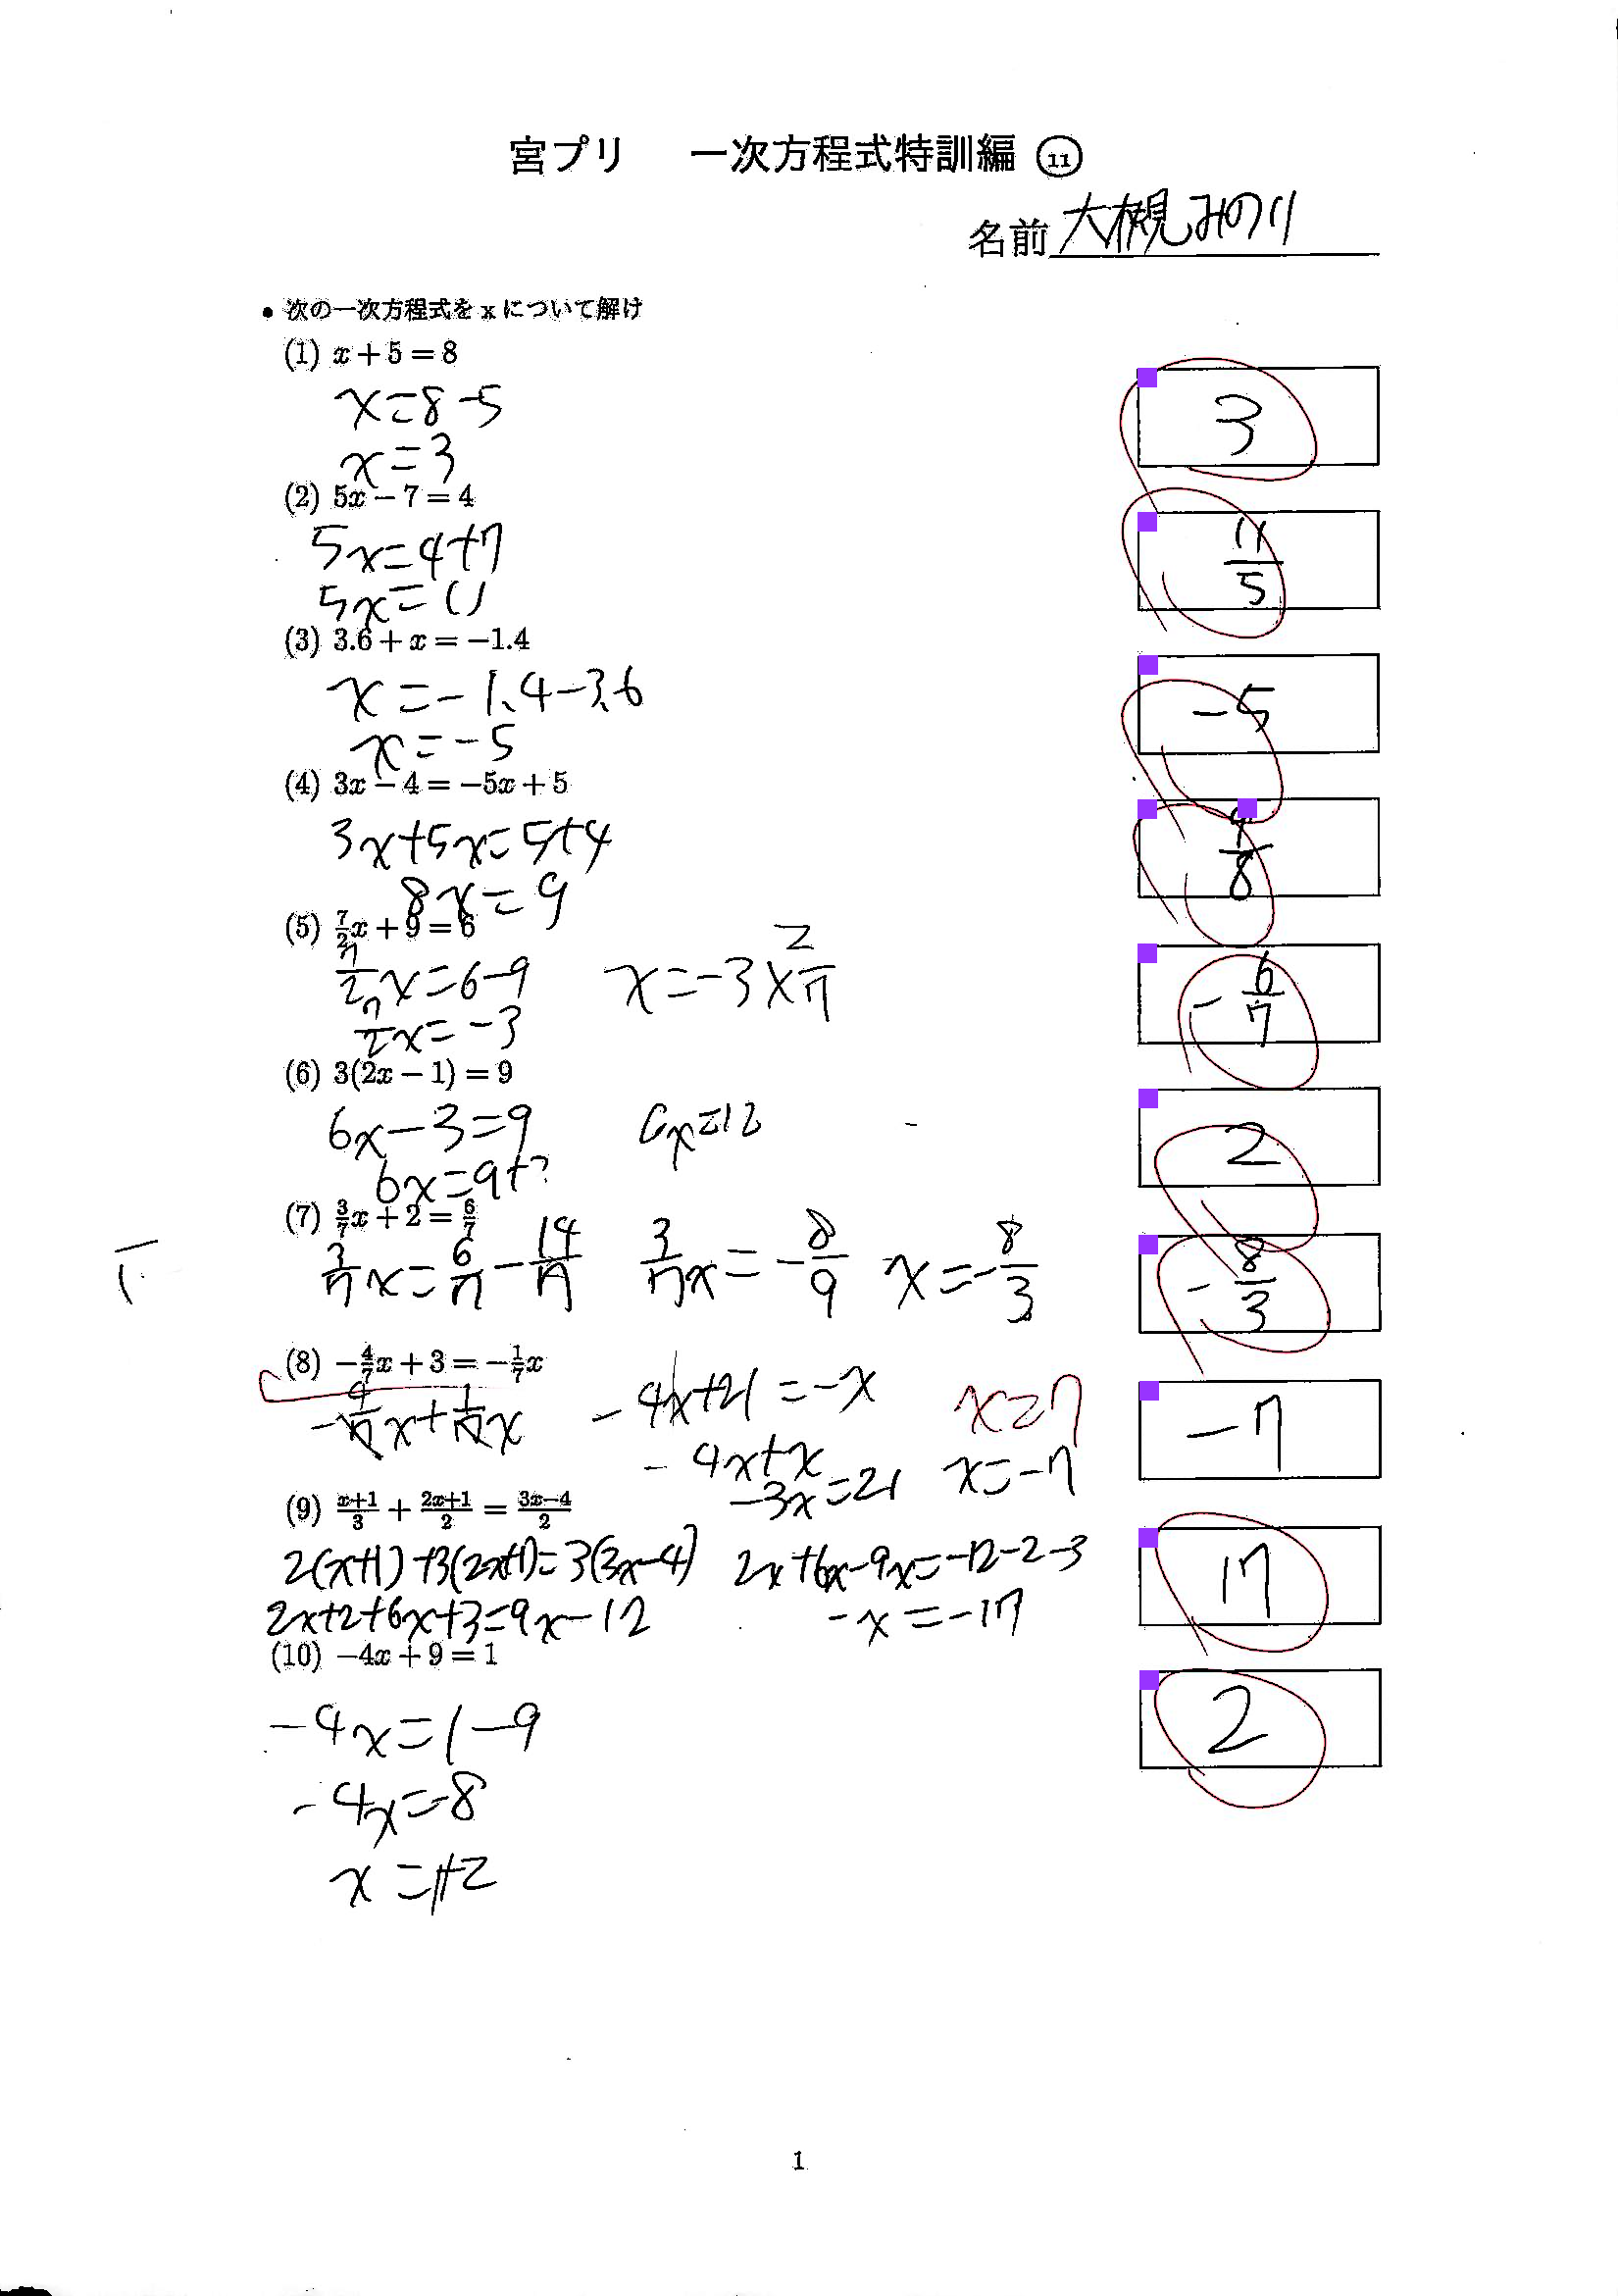 宮プリ 一次方程式特訓編 ⑪
名前 大槻みのり
• 次の一次方程式を x について解け
(1) x + 5 = 8
x=8-5
x=3
3
(2) 5x − 7 = 4
5x=4+7
5x=11
11/5
(3) 3.6 + x = −1.4
x=-1.4-3.6
x=-5
-5
(4) 3x − 4 = −5x + 5
3x+5x=5+4
8x=9
9/8
(5) 7/2x + 9 = 6
7/2x=6-9 x=-3×2/7
7/2x=-3
-6/7
(6) 3(2x − 1) = 9
6x-3=9 6x=12
6x=9+3
2
(7) 3/7x + 2 = 6/7
3/7x=6/7-14/7 3/7x=-8/9 x=-8/3
-8/3
(8) −4/7x + 3 = −1/7x
-4/7x+1/7x -4x+21=-x x=7
-4x+x
-3x=21 x=-7
-7
(9) x+1/3 + 2x+1/2 = 3x−4/2
2(x+1)+3(2x+1)=3(3x-4) 2x+6x-9x=-12-2-3
2x+2+6x+3=9x-12 -x=-17
17
(10) −4x + 9 = 1
-4x=1-9
-4x=-8
x=+2
2
1